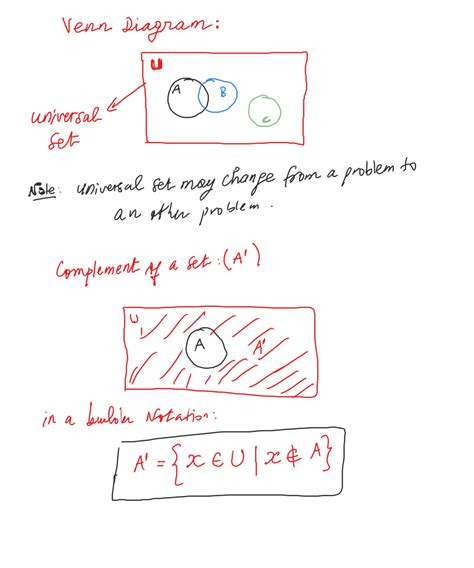 Venn Diagram:
U
A B
C
universal
set
Note: universal set may change from a problem to
an other problem.
Complement of a set: (A')
U
A A'
in a builder Notation:
A' = {x ∈ U | x ∉ A}